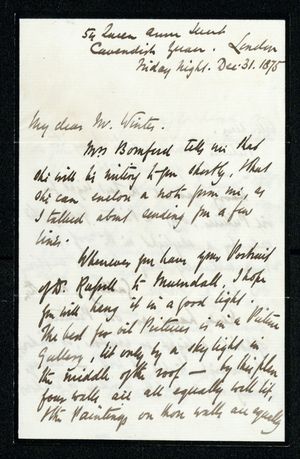 54 Queen Anne Street
Cavendish Square. London
Friday Night. Dec. 31. 1875
My dear Mr. Winter.
Mrs Bomford tells me that
she will be writing to you shortly, & that
she can enclose a note from me, as
I talked about sending you a few
lines.
Whenever you have your Portrait
of Dr. Russell to
I hope
you will hang it in a good light.
The best for oil Pictures is in a Picture
Gallery, lit only by a skylight in
the middle of the roof — by this plan
four walls are all equally well lit,
& the Paintings on those walls are equally